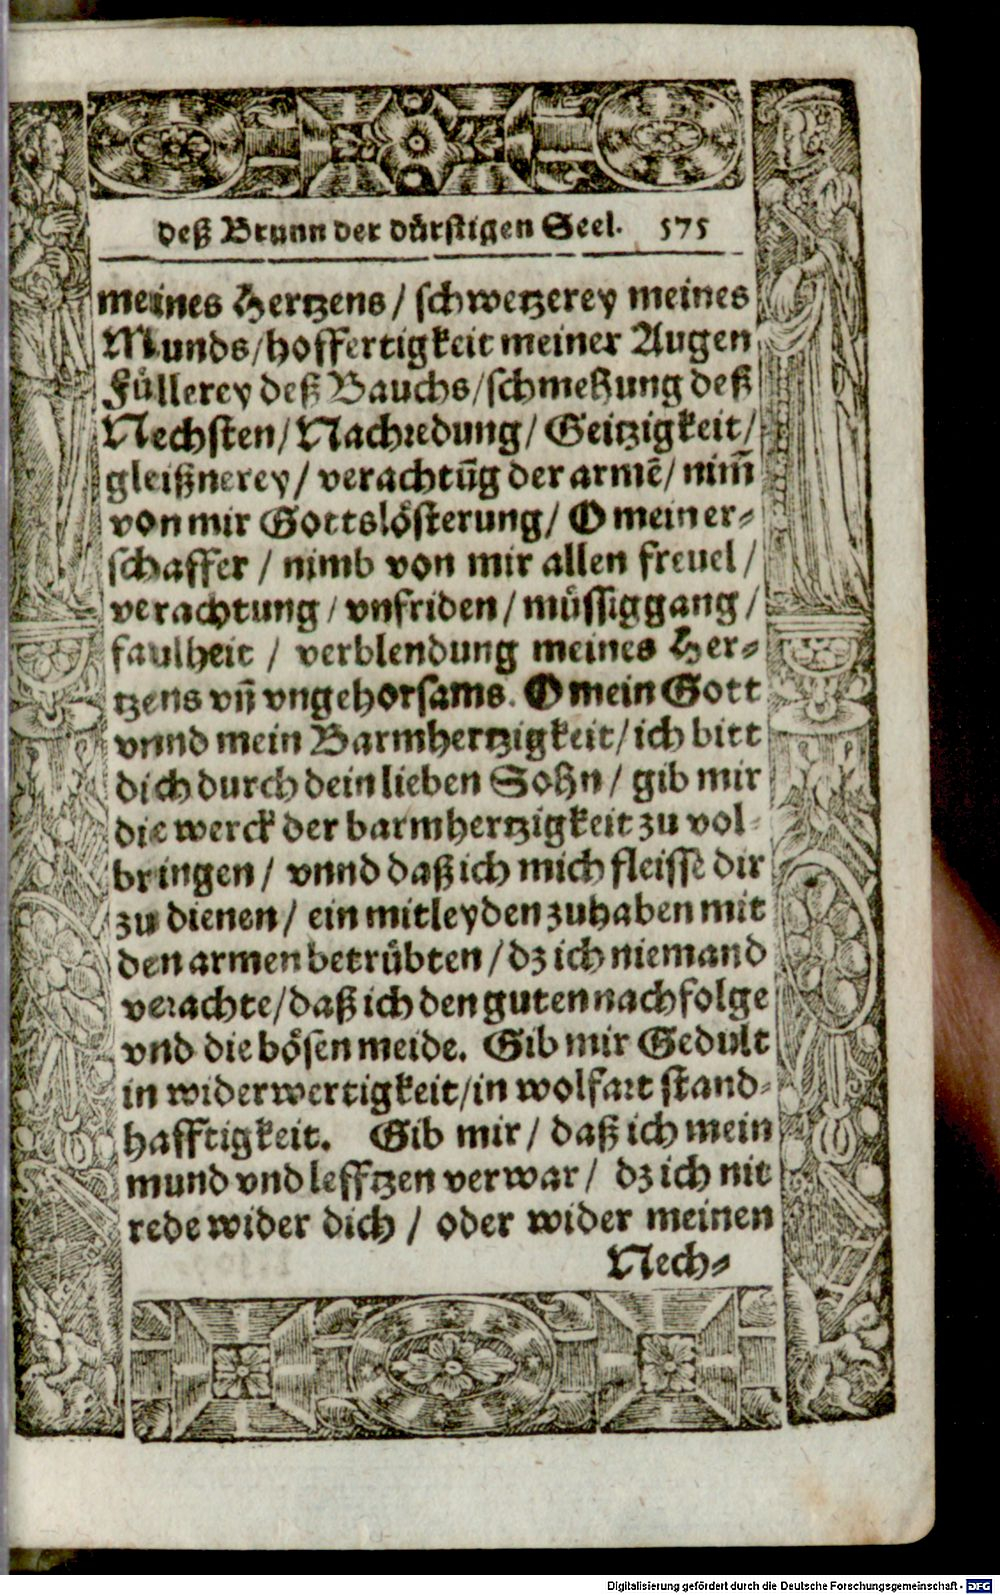 deß Brunn der dürstigen Seel. 575
meines Hertzens / schwetzerey meines
Munds/hoffertigkeit meiner Augen
Füllerey deß Bauchs/schmehung deß
Nechsten/Nachredung/ Geitzigkeit/
gleißnerey/ verachtūg der armē/ nim̄
von mir Gottslösterung/ O mein er-
schaffer / nimb von mir allen freuel /
verachtung / vnfriden / müssiggang /
faulheit / verblendung meines Her-
tzens vn̄ vngehorsams. O mein Gott
vnnd mein Barmhertzigkeit/ich bitt
dich durch dein lieben Sohn / gib mir
die werck der barmhertzigkeit zu vol-
bringen / vnnd daß ich mich fleisse dir
zu dienen / ein mitleyden zuhaben mit
den armen betrübten / dz ich niemand
verachte/daß ich den guten nachfolge
vnd die bösen meide. Gib mir Gedult
in widerwertigkeit/in wolfart stand-
hafftigkeit. Gib mir / daß ich mein
mund vnd lefftzen verwar / dz ich nit
rede wider dich / oder wider meinen
Nech-
Digitalisierung gefördert durch die Deutsche Forschungsgemeinschaft - DFG